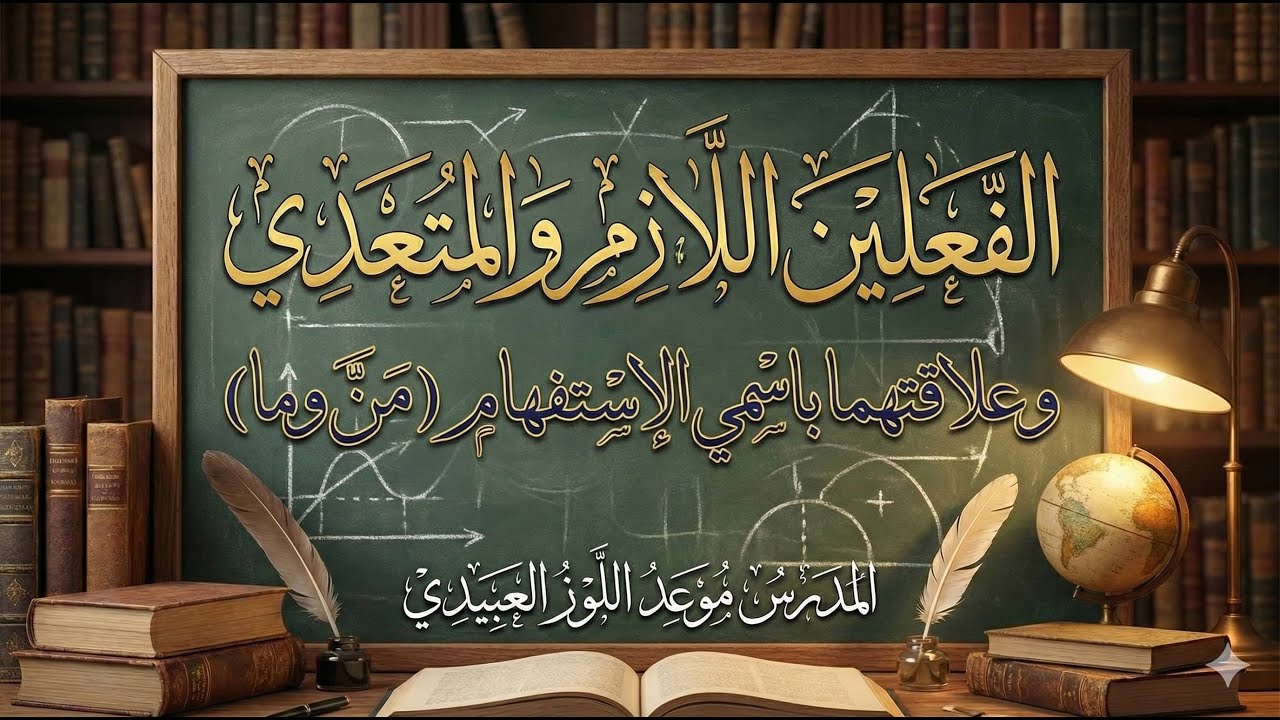 الفَّعَلِيْنَ اللَّازِمِ وَالمُتَعَدِي
وعلاقتهما باسْمِي الإسْتفهامِ (مَنَّ وما)
المَدَرسُ مُوَعَدُ اللَّوْزُ العَبِيَدِيْ